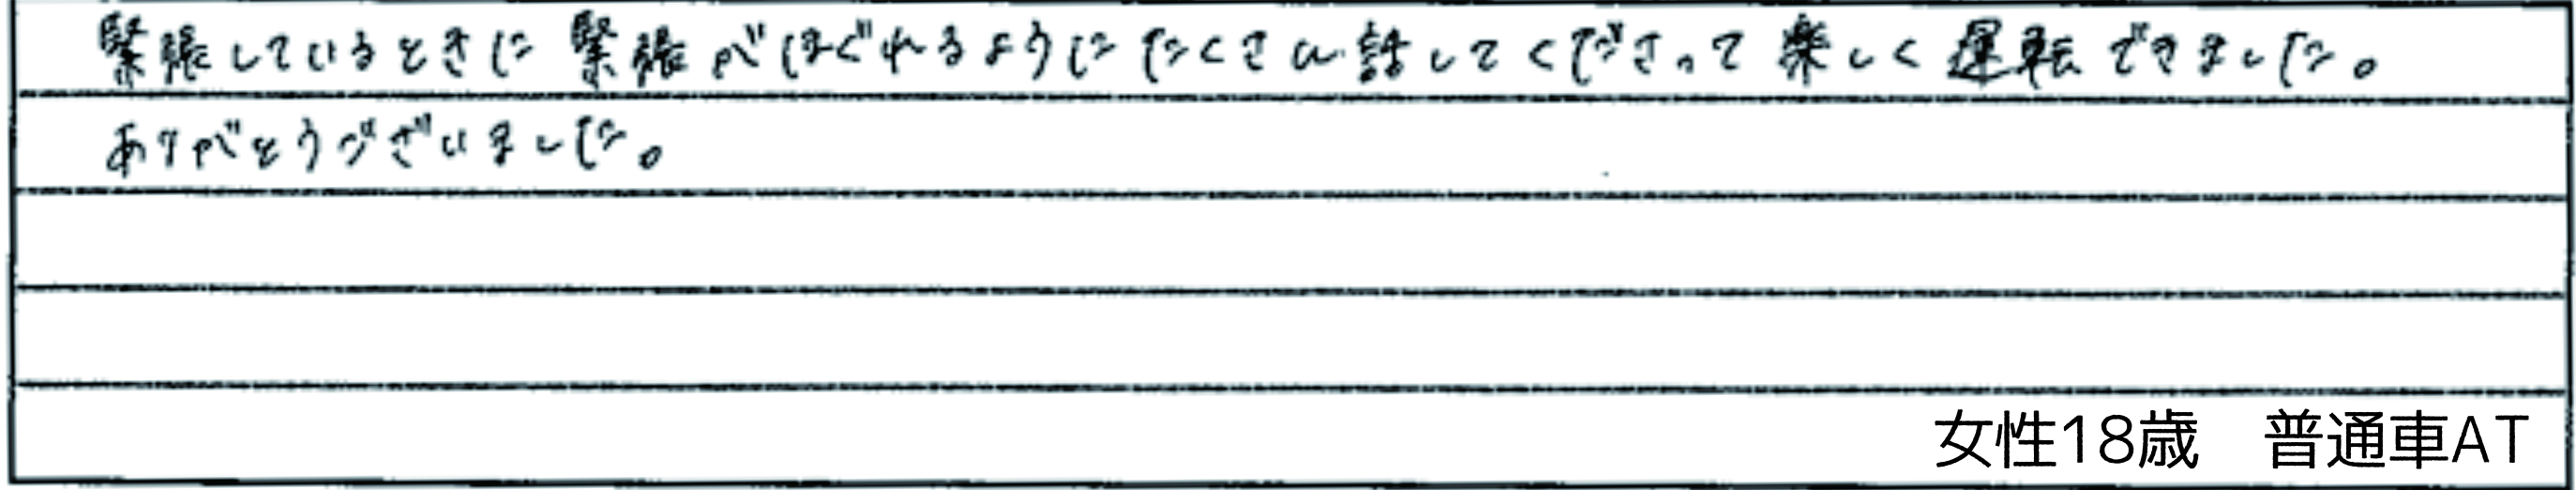 緊張しているときに緊張がほぐれるようにたくさん話してくださって楽しく運転できました。
ありがとうございました。
女性18歳　普通車AT